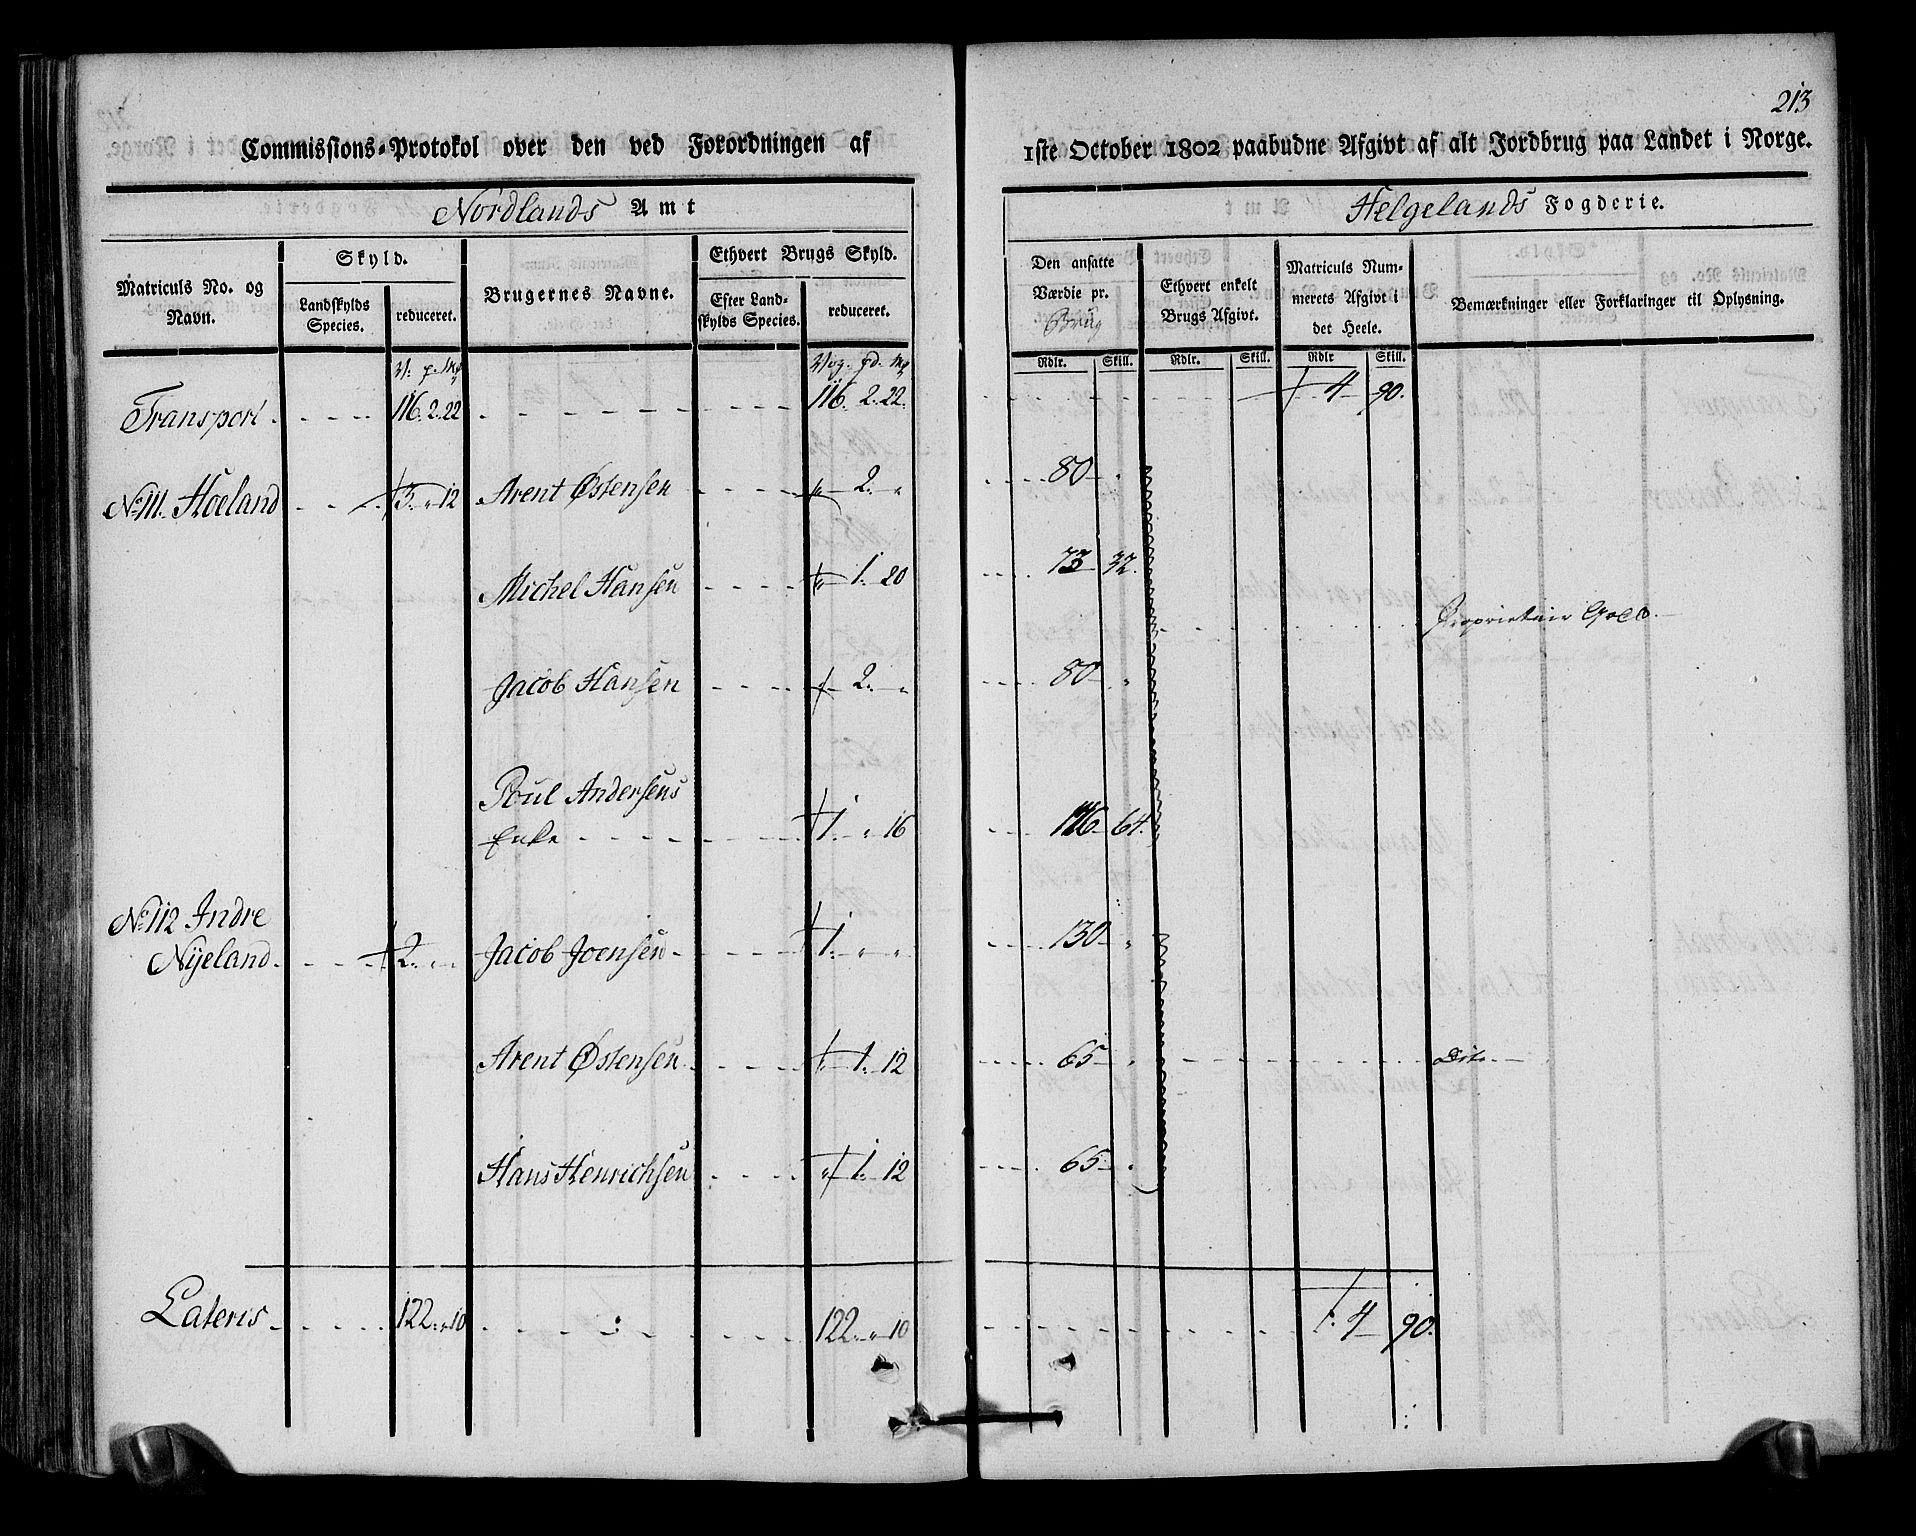 213
Commissions-Protokol over den ved Forordningen af 1ste October 1802 paabudne Afgivt af alt Jordbrug paa Landet i Norge.
Nordlands Amt Helgelands Fogderie.
Matriculs No. og Navn. Skyld. Landskylds Species. reduceret. Brugernes Navne. Ethvert Brugs Skyld. Efter Landskylds Species. reduceret. Den ansatte Værdie pr. Brug Ethvert enkelt Brugs Afgivt. Matriculs Nummerets Afgivt i det Heele. Bemærkninger eller Forklaringer til Oplysning.
V. p. Mk Vog. pd. Mk Rdlr. Skill. Rdlr. Skill. Rdlr Skill.
Transport 116. 2. 22 116. 2. 22. 4 90.
No 111. Hoeland 3. " 12 Arent Østensen " 2. " 80 "
Michel Hansen " 1. 20 73 32.
Proprietair Cold
Jacob Hansen 2. " 80 "
Poul Andersens
Enke 1. " 16 116 64.
No 112 Indre
Nyeland 2. " " Jacob Joensen 1. " " 130 "
Arent Østensen " 1. 12 65 " Dito
Hans Henrichsen " 1. 12 65 "
Lateris 122. " 10 122. " 10 4 90.